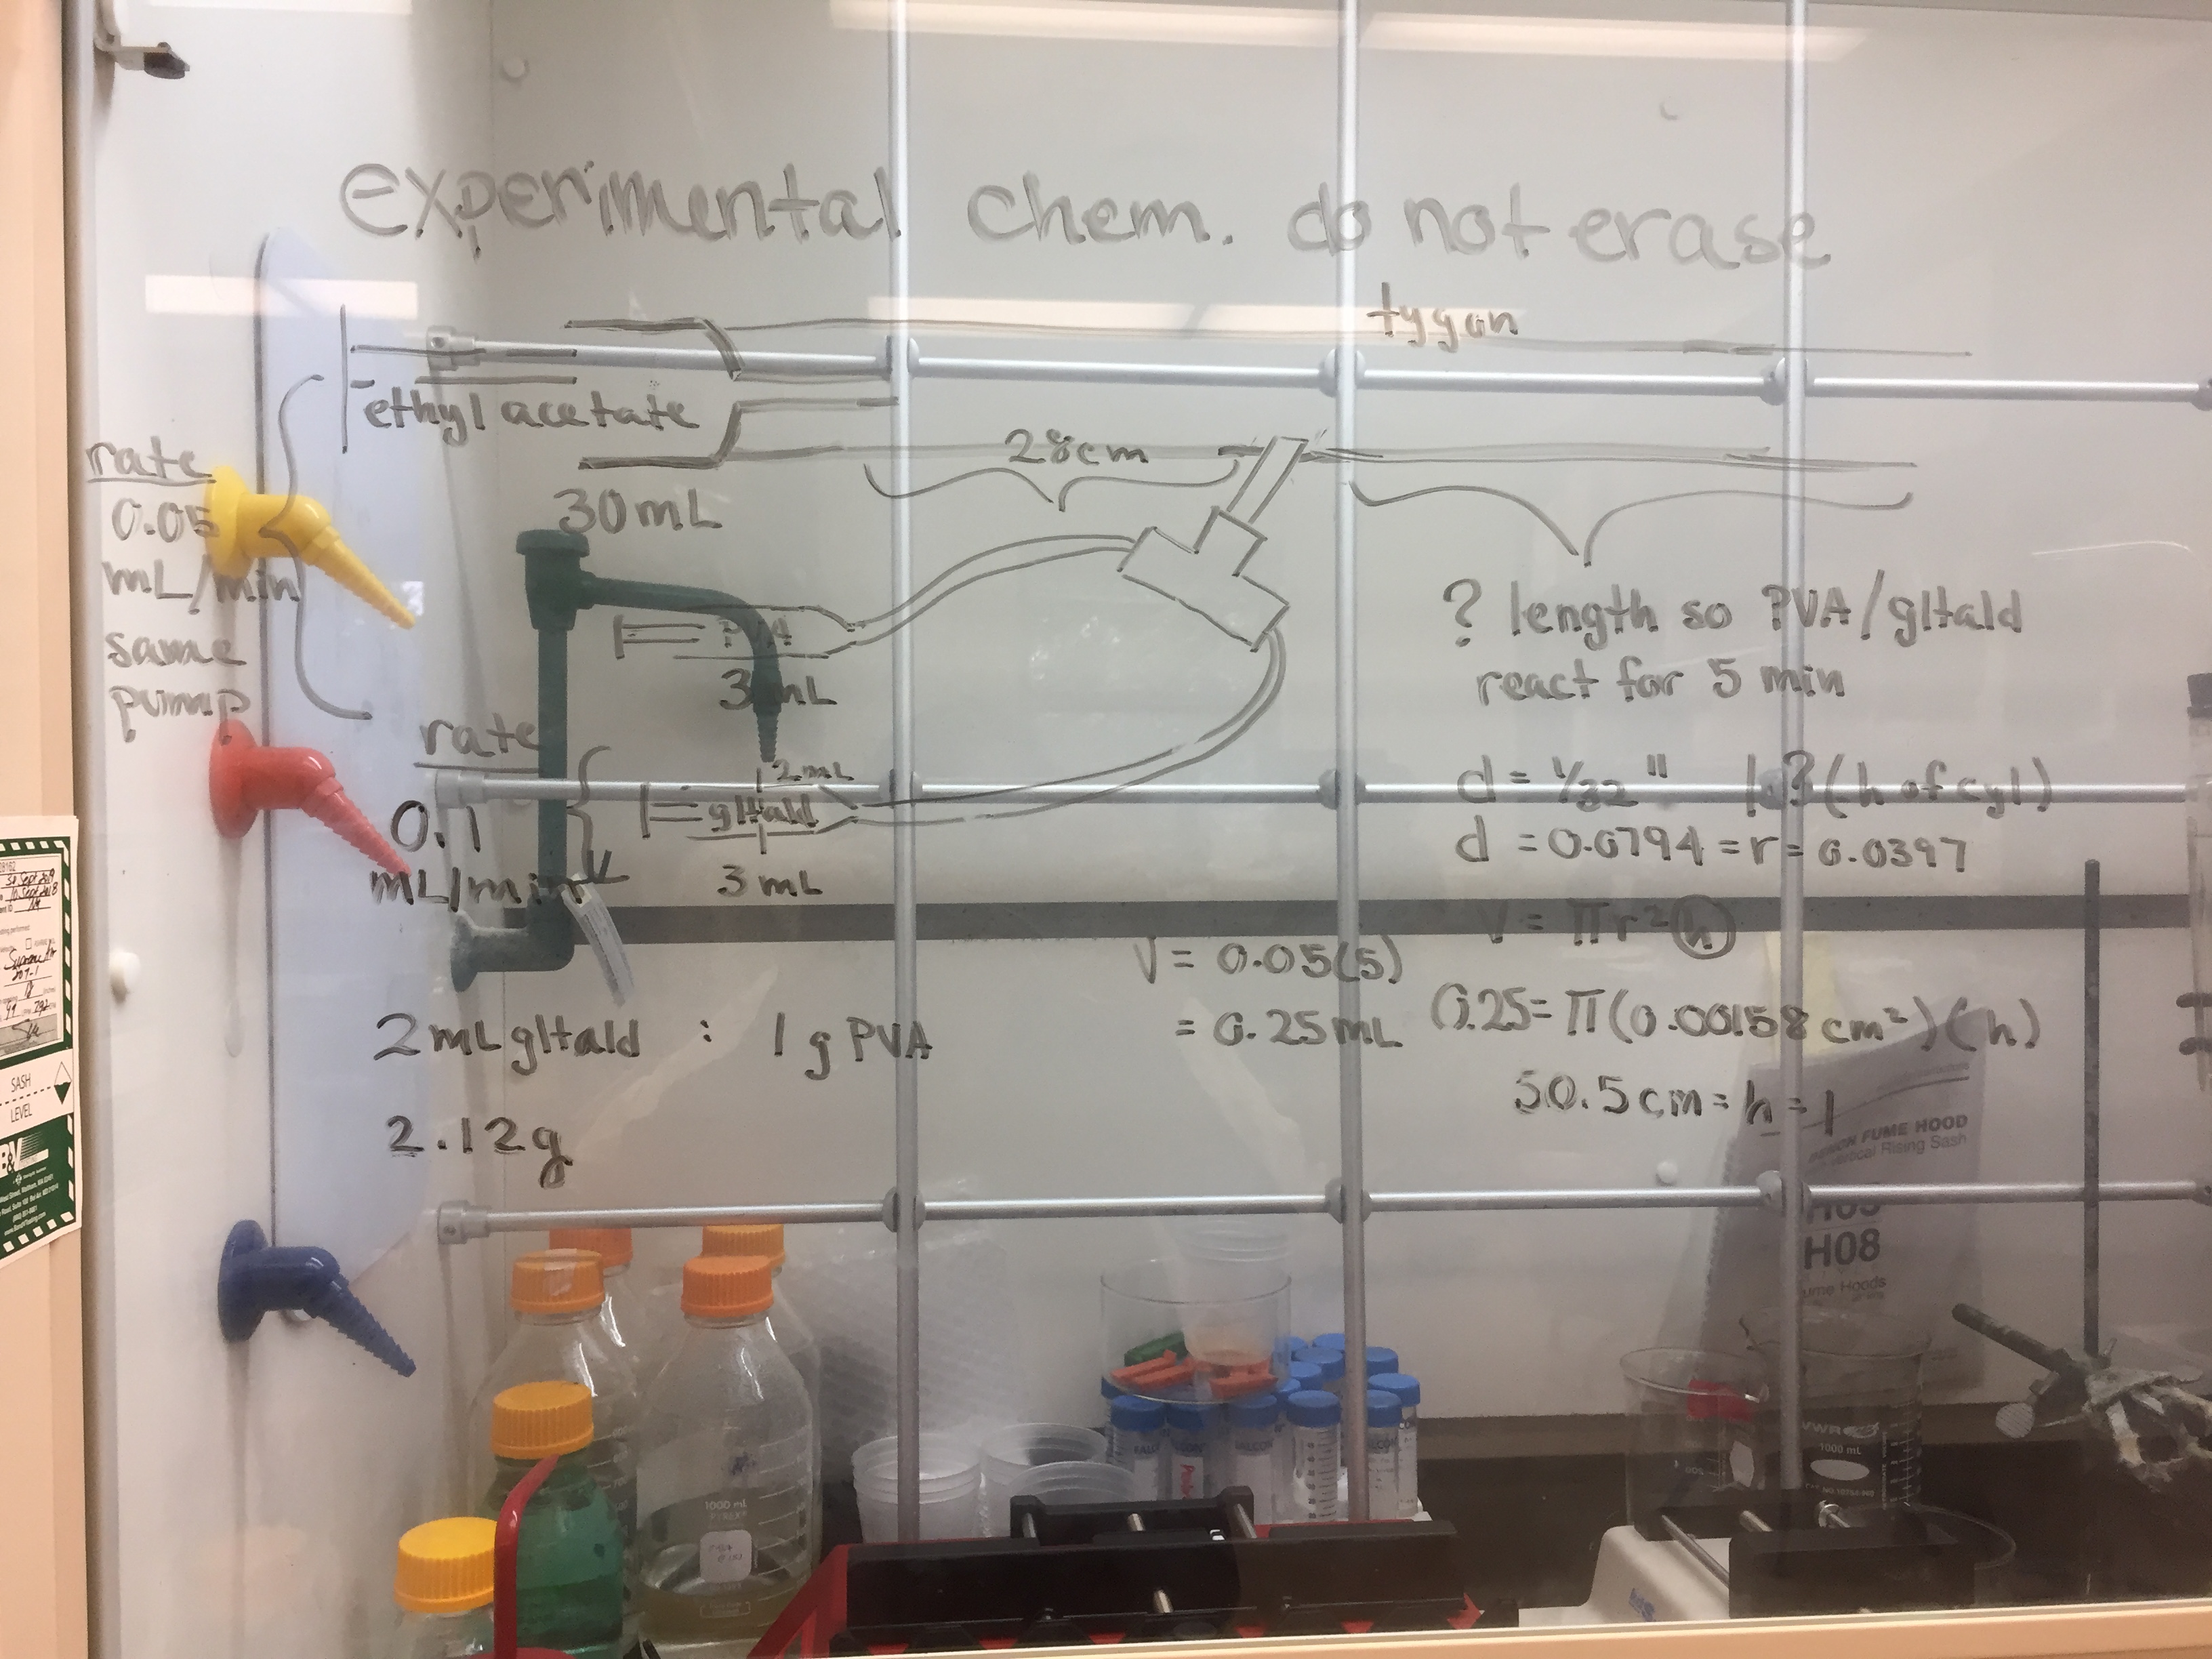 experimental chem. do not erase
tygon
ethyl acetate
28cm
30mL
rate
0.05
mL/min
same
pump
PVA
3 mL
? length so PVA/gltald
react for 5 min
rate
0.1
mL/min
2mL
gltald
3 mL
d = 1/32" l ? (h of cyl)
d = 0.0794 = r = 0.0397
V = πr²h
V = 0.05(5)
= 0.25mL
0.25 = π(0.00158 cm²)(h)
50.5cm = h = l
2mL gltald : 1g PVA
2.12g
SASH
LEVEL
B&V
FUME HOOD
Vertical Rising Sash
H05
H08
ume Hoods
1000 mL
PYREX
VWR
1000 mL
FALCON